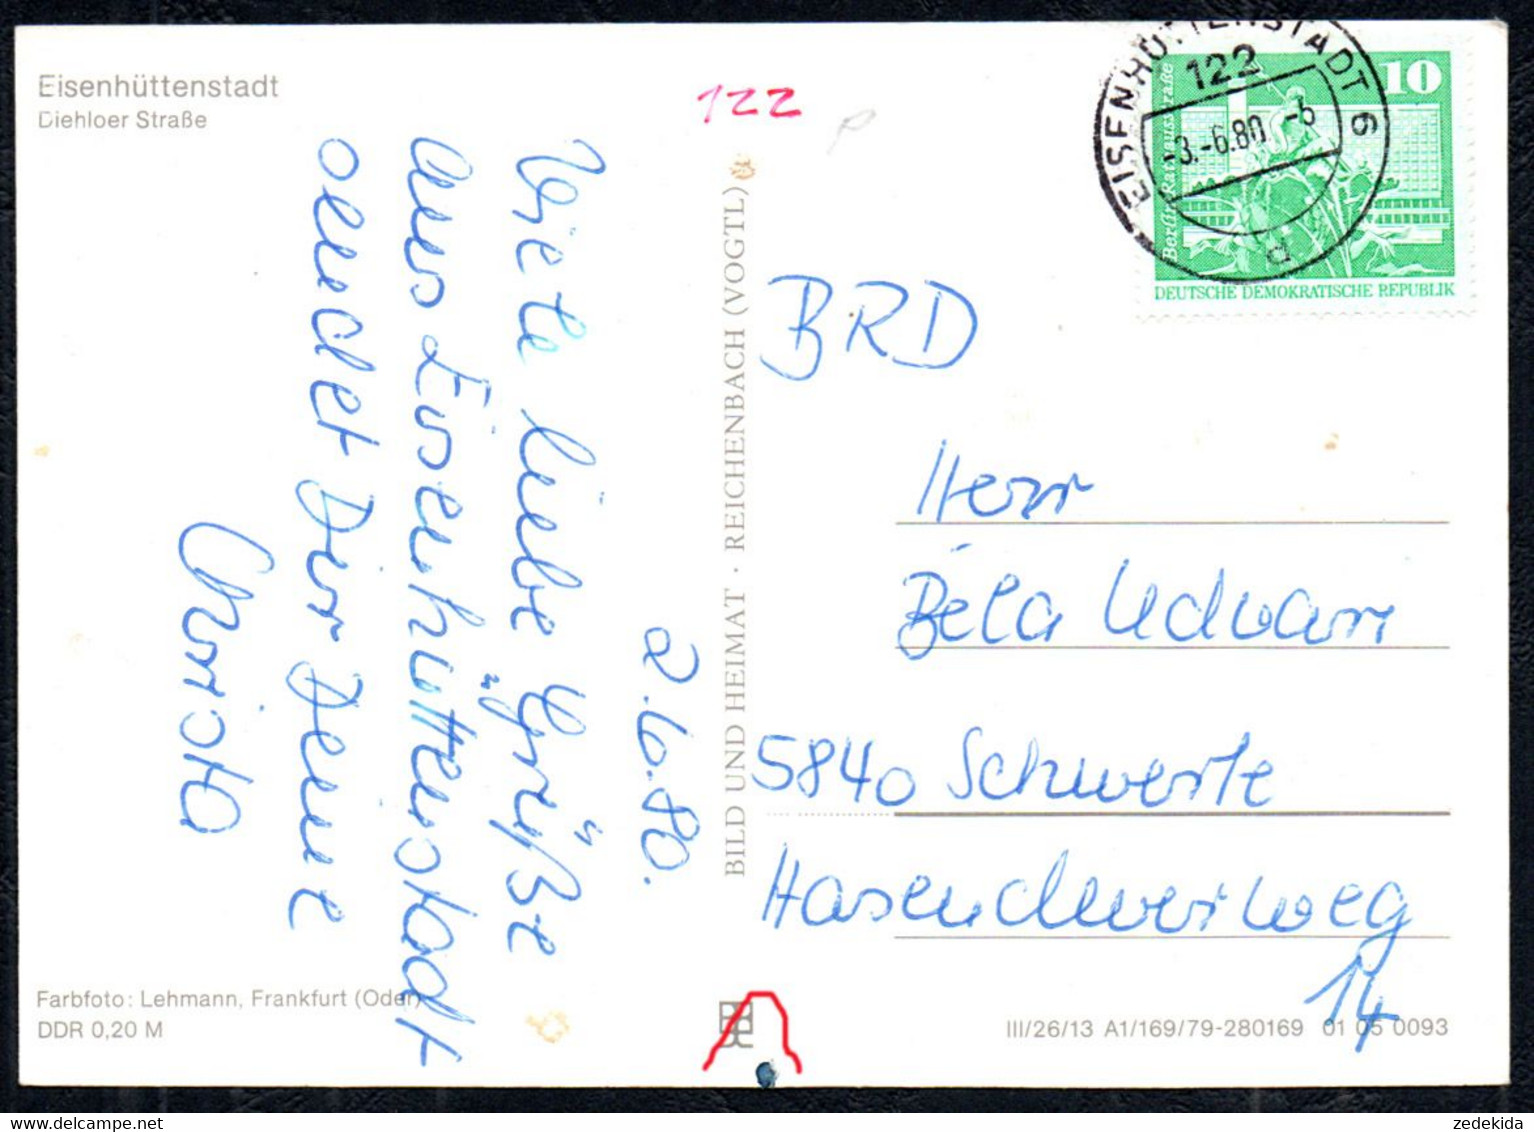 Eisenhüttenstadt
Diehloer Straße
122
Viele liebe Grüße
aus Eisenhüttenstadt
sendet Dir Deine
Christa
2.6.80.
BILD UND HEIMAT · REICHENBACH (VOGTL)
EISENHÜTTENSTADT 6
122
-3.-6.80 -6
Berlin, Rathausstraße
10
DEUTSCHE DEMOKRATISCHE REPUBLIK
BRD
Herr
Béla Udvari
5840 Schwerte
14
Farbfoto: Lehmann, Frankfurt (Oder)
DDR 0,20 M
III/26/13 A1/169/79-280169 01 05 0093
zedekida